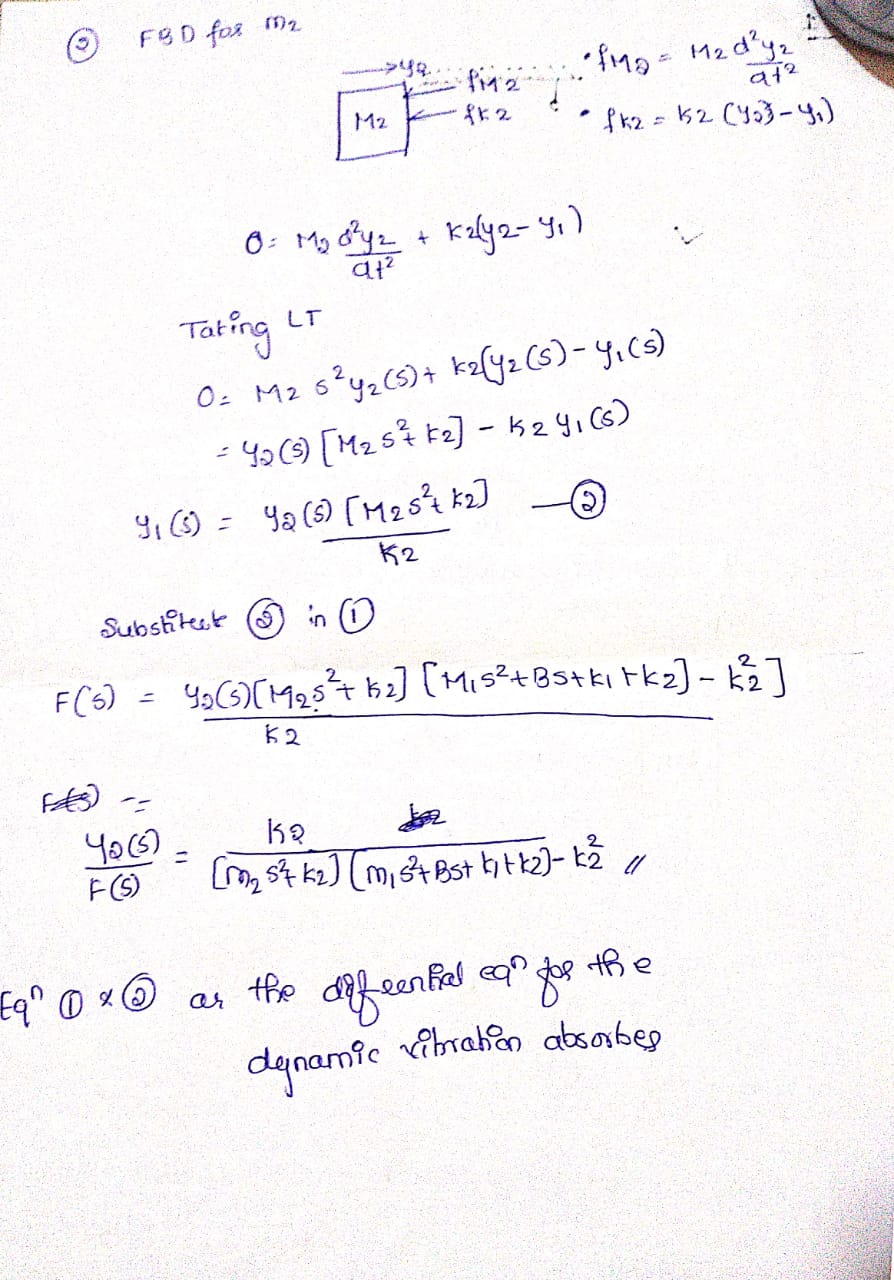 ② FBD for m2
→y2
fM2
• fM2 = M2 d²y2/dt²
M2
fk2
• fk2 = k2 (y2 - y1)
0 = M2 d²y2/dt² + k2(y2 - y1)
Taking LT
0 = M2 s² y2(s) + k2(y2(s) - y1(s)
= y2(s) [M2 s² + k2] - k2 y1(s)
y1(s) = y2(s) [M2s² + k2] / k2 —②
Substitute ② in ①
F(s) = y2(s) [M2s² + k2] [M1s² + Bs + k1 + k2] - k2²] / k2
F(s) =
y2(s)/F(s) = k2 / [m2 s² + k2] (m1s² + Bs + k1 + k2] - k2² //
Eqn ① & ② as the diffeential eqn for the
dynamic vibration absorber